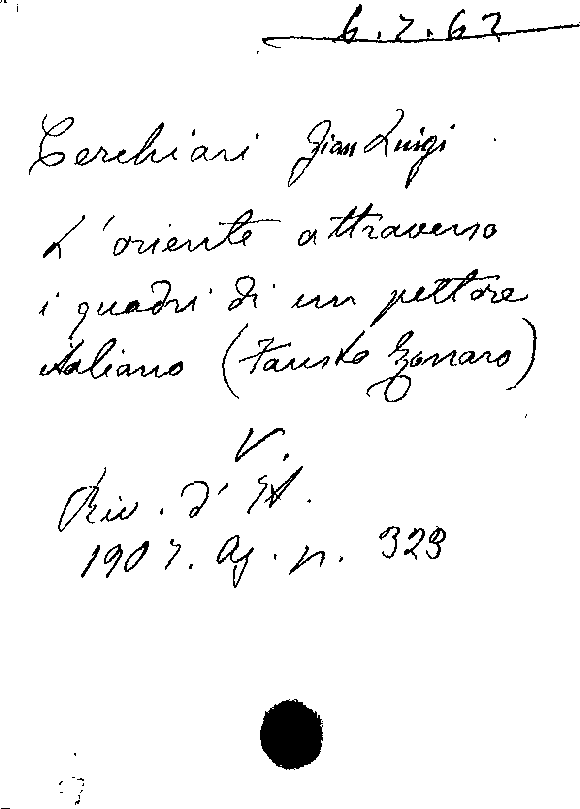 6.7.67
Cerchiari Gian Luigi
L'oriente attraverso
i quadri di un pittore
italiano (Fausto Zonaro)
V.
Riv. d'It.
1907. Ag. p. 323